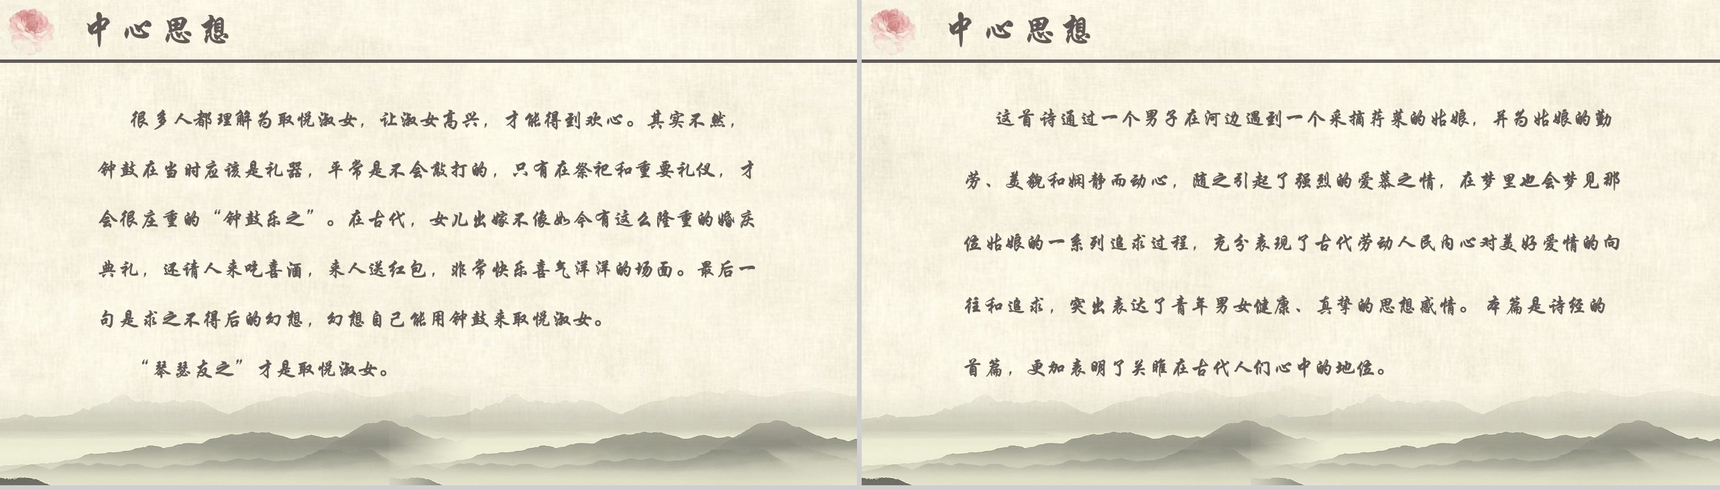 中心思想
很多人都理解为取悦淑女，让淑女高兴，才能得到欢心。其实不然，
钟鼓在当时应该是礼器，平常是不会敲打的，只有在祭祀和重要礼仪，才
会很庄重的“钟鼓乐之”。在古代，女儿出嫁不像如今有这么隆重的婚庆
典礼，还请人来吃喜酒，来人送红包，非常快乐喜气洋洋的场面。最后一
句是求之不得后的幻想，幻想自己能用钟鼓来取悦淑女。
“琴瑟友之”才是取悦淑女。
中心思想
这首诗通过一个男子在河边遇到一个采摘荇菜的姑娘，并为姑娘的勤
劳、美貌和娴静而动心，随之引起了强烈的爱慕之情，在梦里也会梦见那
位姑娘的一系列追求过程，充分表现了古代劳动人民内心对美好爱情的向
往和追求，突出表达了青年男女健康、真挚的思想感情。 本篇是诗经的
首篇，更加表明了关雎在古代人们心中的地位。